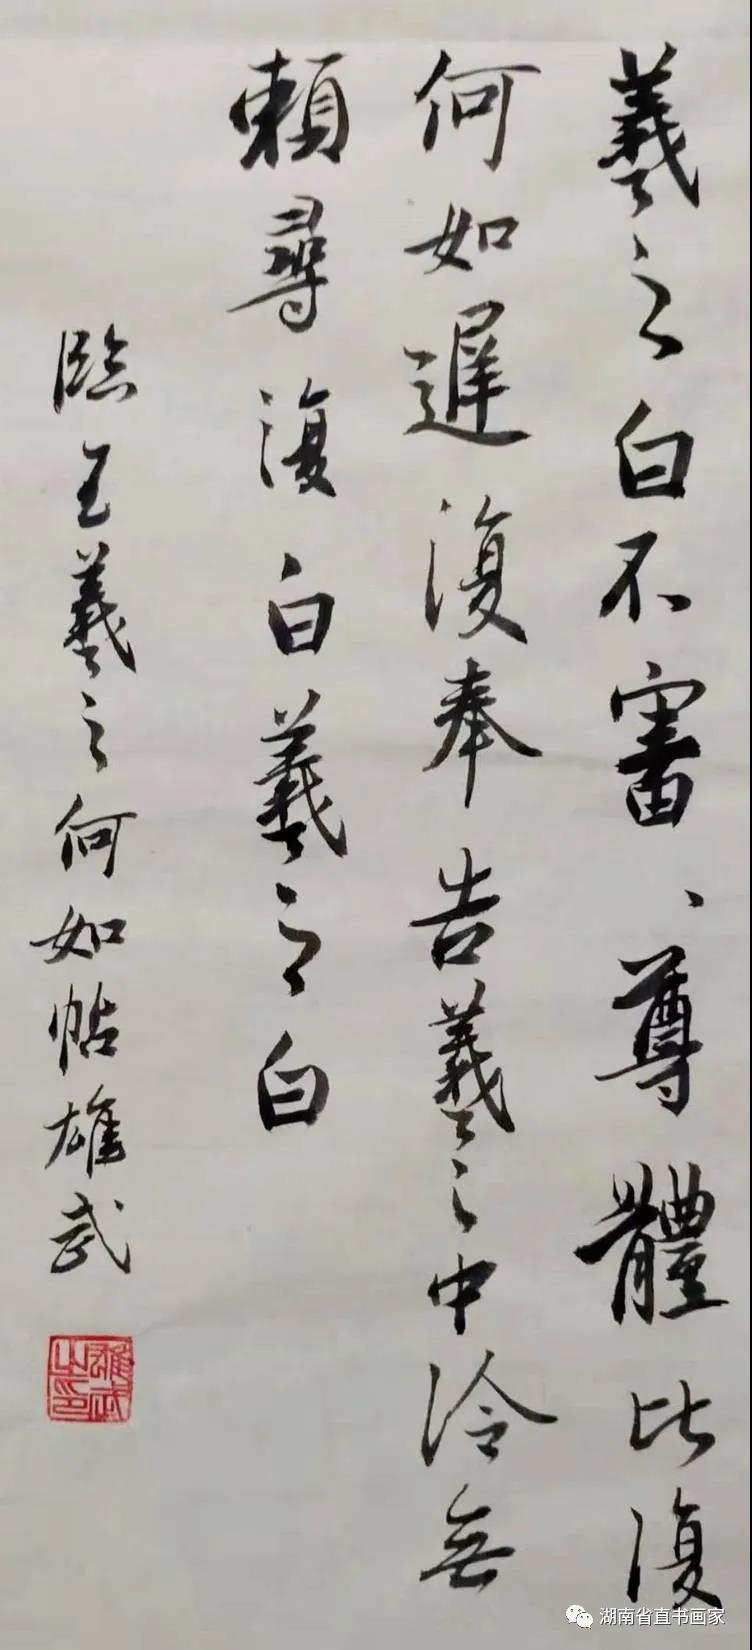 羲之白不審、尊體比復
何如遲復奉告羲之中冷無
賴尋復白羲之白
臨王羲之何如帖雄武
雄武之印
湖南省直书画家